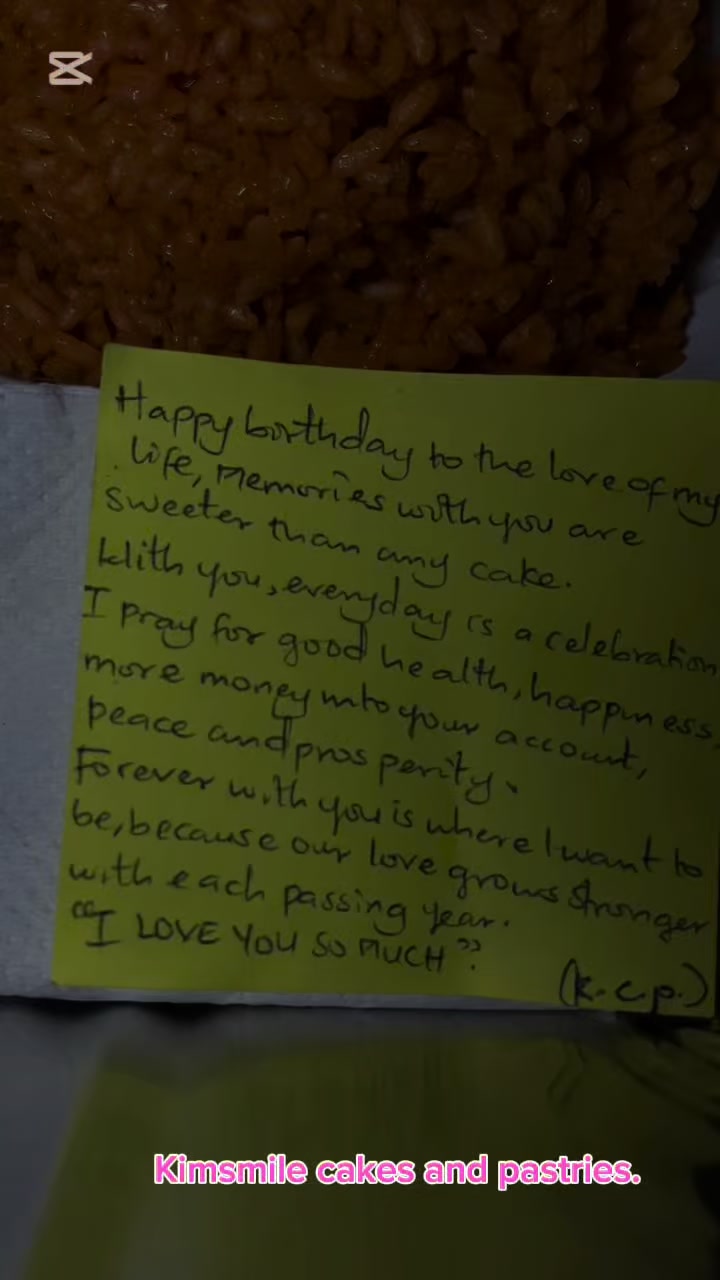 Happy birthday to the love of my
life, Memories with you are
sweeter than any cake.
With you, everyday is a celebration
I pray for good health, happiness,
more money into your account,
peace and prosperity.
Forever with you is where I want to
be, because our love grows stronger
with each passing year.
"I LOVE YOU SO MUCH".
(K.C.P.)
Kimsmile cakes and pastries.